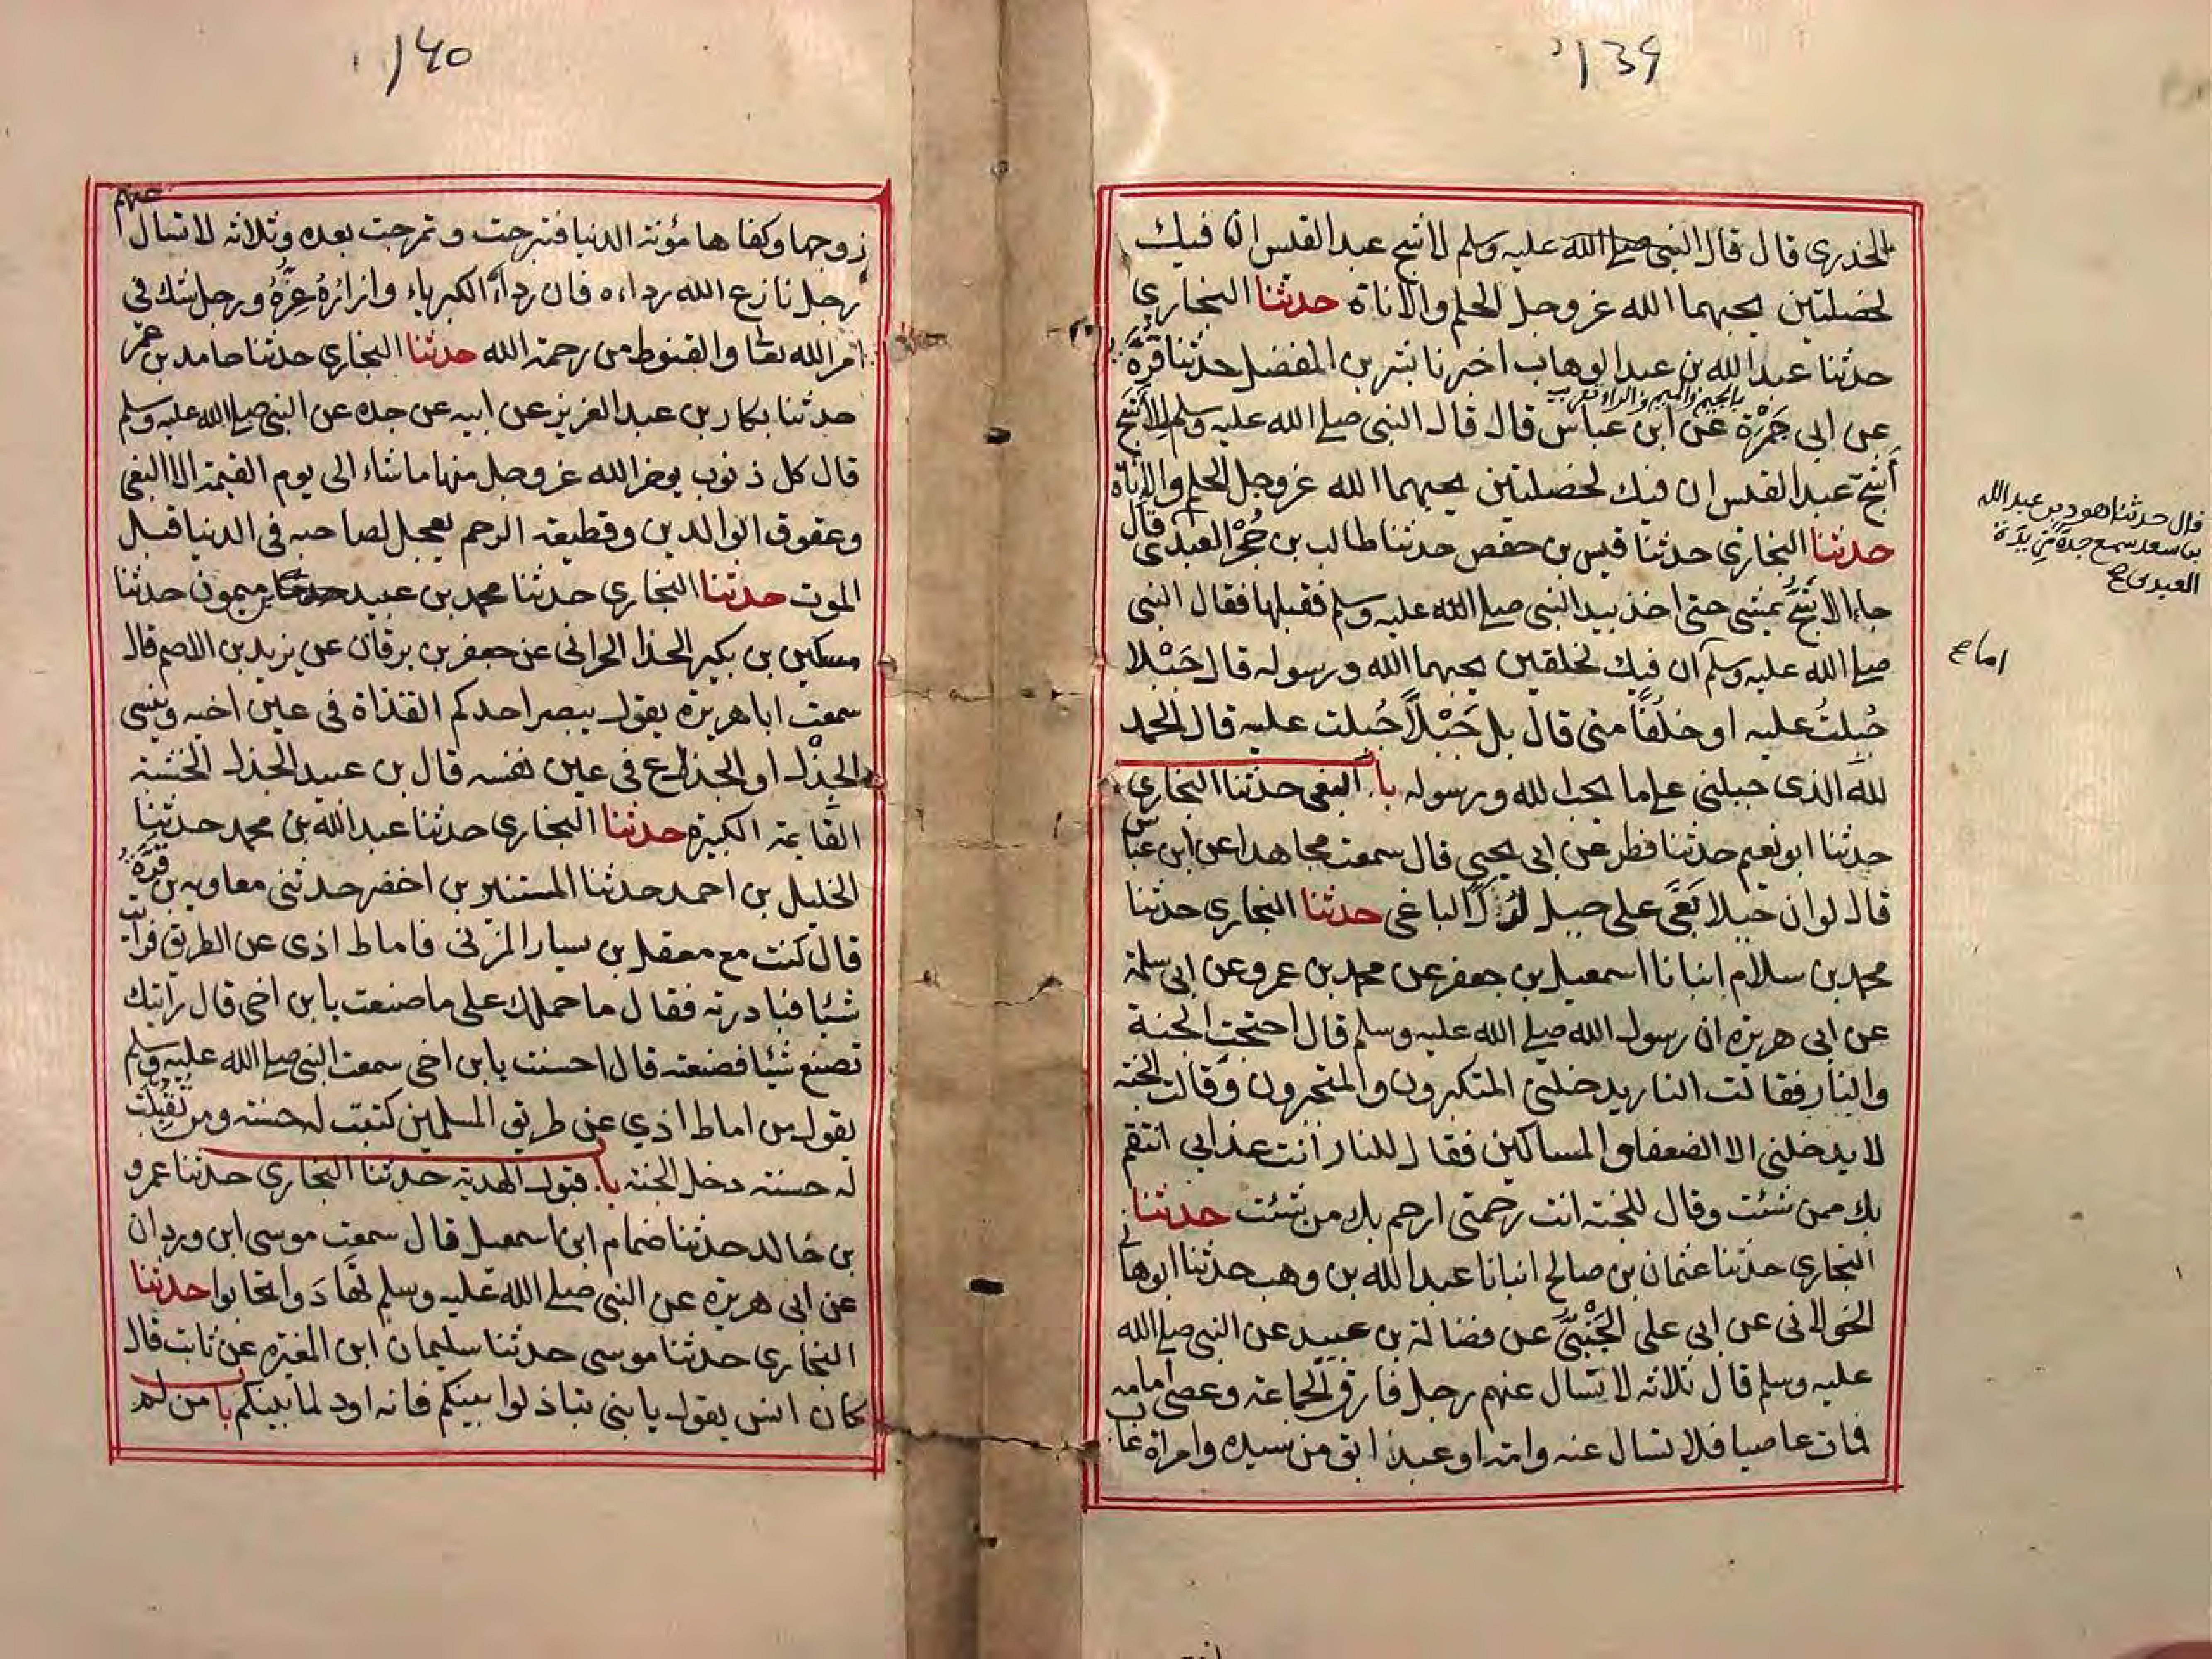 139
الخدري قال قال النبي صلى الله عليه وسلم لاشج عبد القيس ان فيك
لخصلتين يحبهما الله عز وجل الحلم والاناة حدثنا البخاري
حدثنا عبد الله بن عبد الوهاب اخبرنا بشر بن المفضل حدثنا قرة
بالجيم والميم والراء
عن ابي جمرة عن ابن عباس قال قال النبي صلى الله عليه وسلم للاشج
أشج عبد القيس ان فيك لخصلتين يحبهما الله عز وجل الحلم والاناة
حدثنا البخاري حدثنا قيس بن حفص حدثنا طالب بن حُجْر العبدي قال
جاء الاشج يمشي حتى اخذ بيد النبي صلى الله عليه وسلم فقبلها فقال النبي
صلى الله عليه وسلم ان فيك لخلقين يحبهما الله ورسوله قال جَبْلا
جُبلتُ عليه او خلقًا مني قال بل جَبْلاً جُبلت عليه قال الحمد
لله الذي جبلني على ما يحب الله ورسوله باب البغى حدثنا البخاري
حدثنا ابو نعيم حدثنا فطر عن ابي يحيى قال سمعت مجاهدا عن ابن عباس
قال لو ان جبلا بَغَى على جبل لدك الباغى حدثنا البخاري حدثنا
محمد بن سلام انبانا اسمعيل بن جعفر عن محمد بن عمرو عن ابي سلمة
عن ابي هريرة ان رسول الله صلى الله عليه وسلم قال احتجت الجنة
والنار فقالت النار يدخلني المتكبرون والمتجبرون وقالت الجنة
لا يدخلني الا الضعفاء والمساكين فقال للنار انت عذابي انتقم
بك ممن شئت وقال للجنة انت رحمتي ارحم بك من شئت حدثنا
البخاري حدثنا عثمان بن صالح انبانا عبد الله بن وهب حدثنا ابو هانى
الخولاني عن ابي علي الجَنْبيّ عن فضالة بن عبيد عن النبي صلى الله
عليه وسلم قال ثلاثة لا تسال عنهم رجل فارق الجماعة وعصى امامه
فمات عاصيا فلا تسال عنه وامة او عبد ابق من سيده وامراة غاب
قال حدثنا هود بن عبد الله
بن سعد سمع جده مَزِيدَة
العبدي ح
اما ح
140
زوجها وكفاها مؤنة الدنيا فتبرجت وتمرجت بعده وثلاثة لا تسال عنهم
رجل نازع الله رداءه فان رداءَه الكبرياء وازارُهُ عِزّهُ ورجل شك في
امر الله تعا والقنوط من رحمة الله حدثنا البخاري حدثنا حامد بن عمر
حدثنا بكار بن عبد العزيز عن ابيه عن جده عن النبي صلى الله عليه وسلم
قال كل ذنوب يوخر الله عز وجل منها ما شاء الى يوم القيمة الا البغى
وعقوق الوالدين وقطيعة الرحم يعجل لصاحبه في الدنيا قبل
الموت حدثنا البخاري حدثنا محمد بن عبيد بن ميمون حدثنا
مسكين بن بكير الحذا الحراني عن جعفر بن برقان عن يزيد بن الاصم قال
سمعت ابا هريرة يقول يبصر احدكم القذاة في عين اخيه وينسى
الجذْل او الجذع في عين نفسه قال بن عبيد الجذل الخشبة
القايمة الكبيرة حدثنا البخاري حدثنا عبد الله بن محمد حدثنا
الخليل بن احمد حدثنا المستنير بن اخضر حدثني معاوية بن قرة
قال كنت مع معقل بن يسار المزني فاماط اذى عن الطريق فرايت
شيئا فبادرته فقال ما حملك على ما صنعت يا بن اخي قال رايتك
تصنع شيئا فصنعته قال احسنت يا بن اخي سمعت النبي صلى الله عليه وسلم
يقول من اماط اذى عن طريق المسلمين كتبت له حسنة ومن تقبلت
له حسنة دخل الجنة باب قبول الهدية حدثنا البخاري حدثنا عمرو
بن خالد حدثنا ضمام ابن اسمعيل قال سمعت موسى ابن وردان
عن ابي هريرة عن النبي صلى الله عليه وسلم تهَادَوا تحابوا حدثنا
البخاري حدثنا موسى حدثنا سليمان ابن المغيرة عن ثابت قال
كان انس يقول يا بني تباذلوا بينكم فانه اود لما بينكم باب من لم